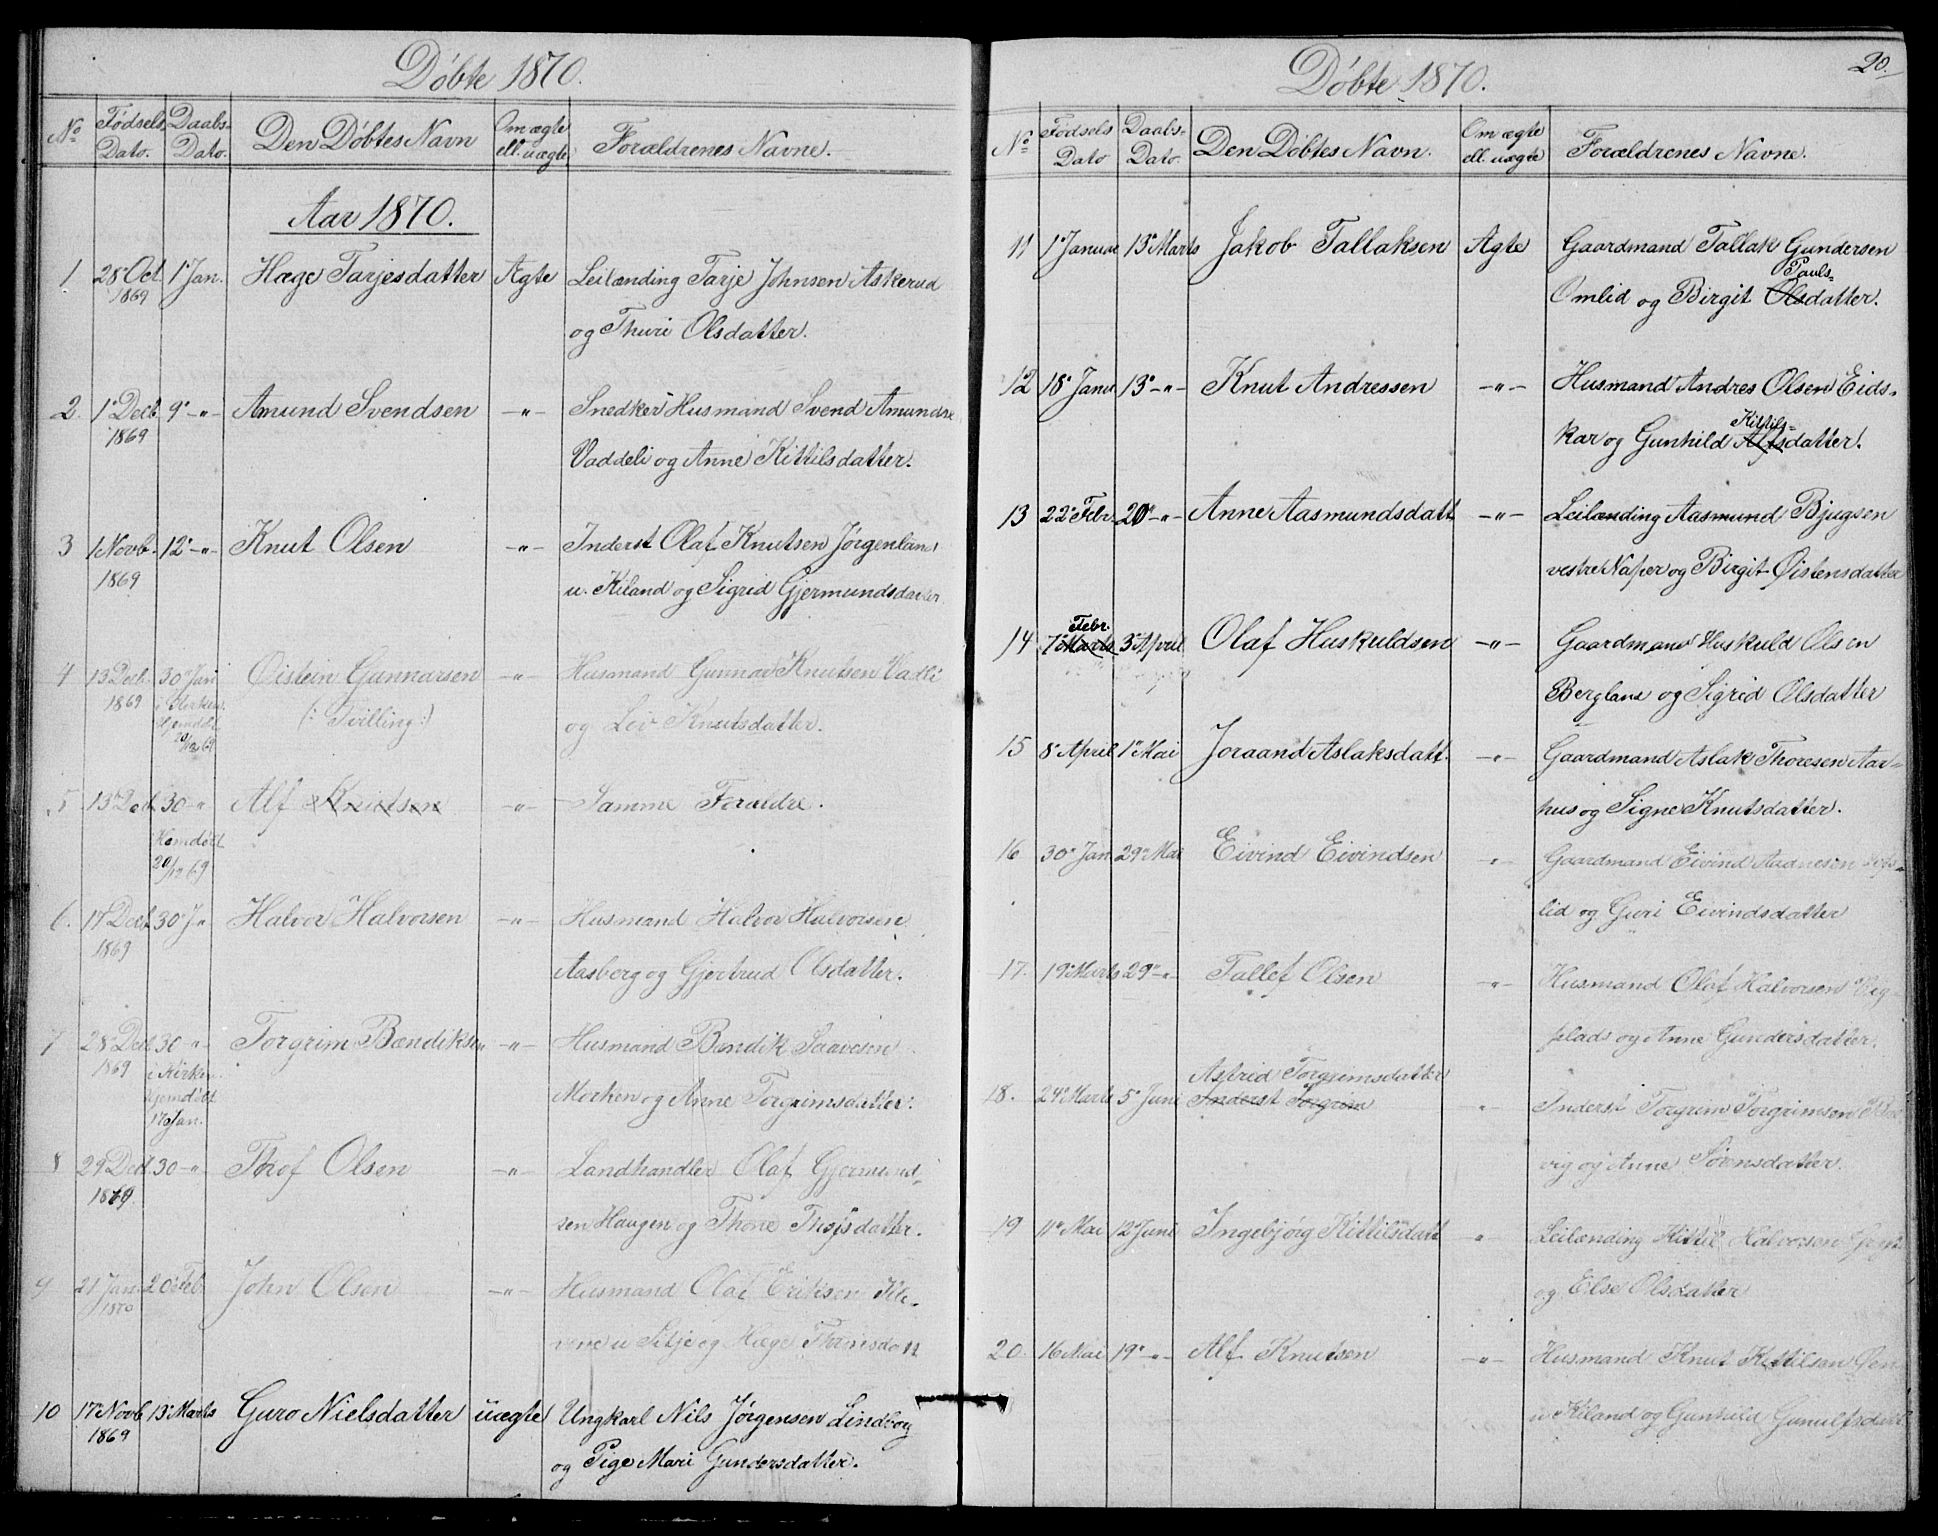 Døbte 1870.
No Fødsels Dato. Daabs- Dato. Den Døbtes Navn Om ægte ell. uægte Forældrenes Navne.
Aar 1870.
1 28 Oct. 1869 1' Jan. Hæge Tarjesdatter Ægte Leilænding Tarje Johnsen Askerud
og Thuri Olsdatter.
2. 1' Decb. 1869 9' -"- Amund Svendsen -"- Snedker Husmand Svend Amunds
Vaddeli og Anne Kittilsdatter.
3 1 Novb. 1869 12' -"- Knut Olsen -"- Inderst Olaf Knutsen Jørgenland
u. Kiland og Sigrid Gjermundsdatter
4 13 Decb. 1869 30 Jan i Kirken. Hjemdøbt 20/12 69 Øistein Gunnarsen -"- Husmand Gunnar Knutsen Vadli
(: Tvilling :) og Liv Knutsdatter.
5 13 Decb. 30 -"- Alf Knudsen -"- Samme Forældre.
Hjemdøbt
20/12 69
6. 17 Decb. 1869 30 J" Halvor Halvorsen -"- Husmand Halvor Halvorsen
Aasberg og Gjertrud Olsdatter.
7 28 Decb. 1869 30 -"- i Kirken. Hjemdøbt 17 Jan. Torgrim Bendiksen -"- Husmand Bendik Saavesen
Morken og Anne Torgrimsdatter.
8 29 Decb. 1869 30 -"- Thof Olsen -"- Landhandler Olaf Gjermund-
sen Haugen og Thone Thofsdatter.
9 21 Jan. 1870 20' Feb. John Olsen -"- Husmand Olaf Eriksen
u Silje og Hæge
10 17 Novb 1869 13' Marts Guro Nielsdatter uægte Ungkarl Nils Jørgensen Lindborg
og Pige Mari Gundersdatter.
20.
Døbte 1870.
No Fødsels Dato Daabs- Dato. Den Døbtes Navn. Om ægte ell. uægte Forældrenes Navne.
11 1' Januar 13' Marts Jakob Tallaksen Ægte Gaardmand Tallak Gundersen
Pauls-
Omlid og Birgit Olsdatter.
12 18' Janr 13' -"- Knut Andressen -"- Husmand Andres Olsen Eids-
Kittils-
kar og Gunhild Alfsdatter.
13 22' Febr. 20' -"- Anne Aasmundsdatt -"- Leilænding Aasmund Bjugsen
vestre Naper og Birgit Øistensdatter
Febr.
14 7' Marts 3' April Olaf Huskuldsen -"- Gaardmand Huskuld Olsen
Bergland og Sigrid Olsdatter
15 8' April 1' Mai Joraand Aslaksdatt. -"- Gaardmand Aslak Thoresen Aar-
hus og Signe Knutsdatter.
16 30' Jan 29' Mai Eivind Eivindsen -"- Gaardmand Eivind Aadnesen
lid og Guri Eivindsdatter
17. 19' Marts 29' -"- Tallef Olsen -"- Husmand Olaf Halvorsen
plads og Anne Gundersdatter.
Astrid Torgrimsdatter
18. 24' Marts 5' Juni Inderst Torgrim " Inderst Torgrim Torgrimsen
vig og Anne Sørensdatter.
19 11' Mai 12' Juni Ingebjørg Kittilsdatt " Leilænding Kittil Halvorsen
og Else Olsdatter
20. 16 Mai 19' -"- Alf Knutsen -"- Husmand Knut Kittilsen
u Kiland og Gunhild